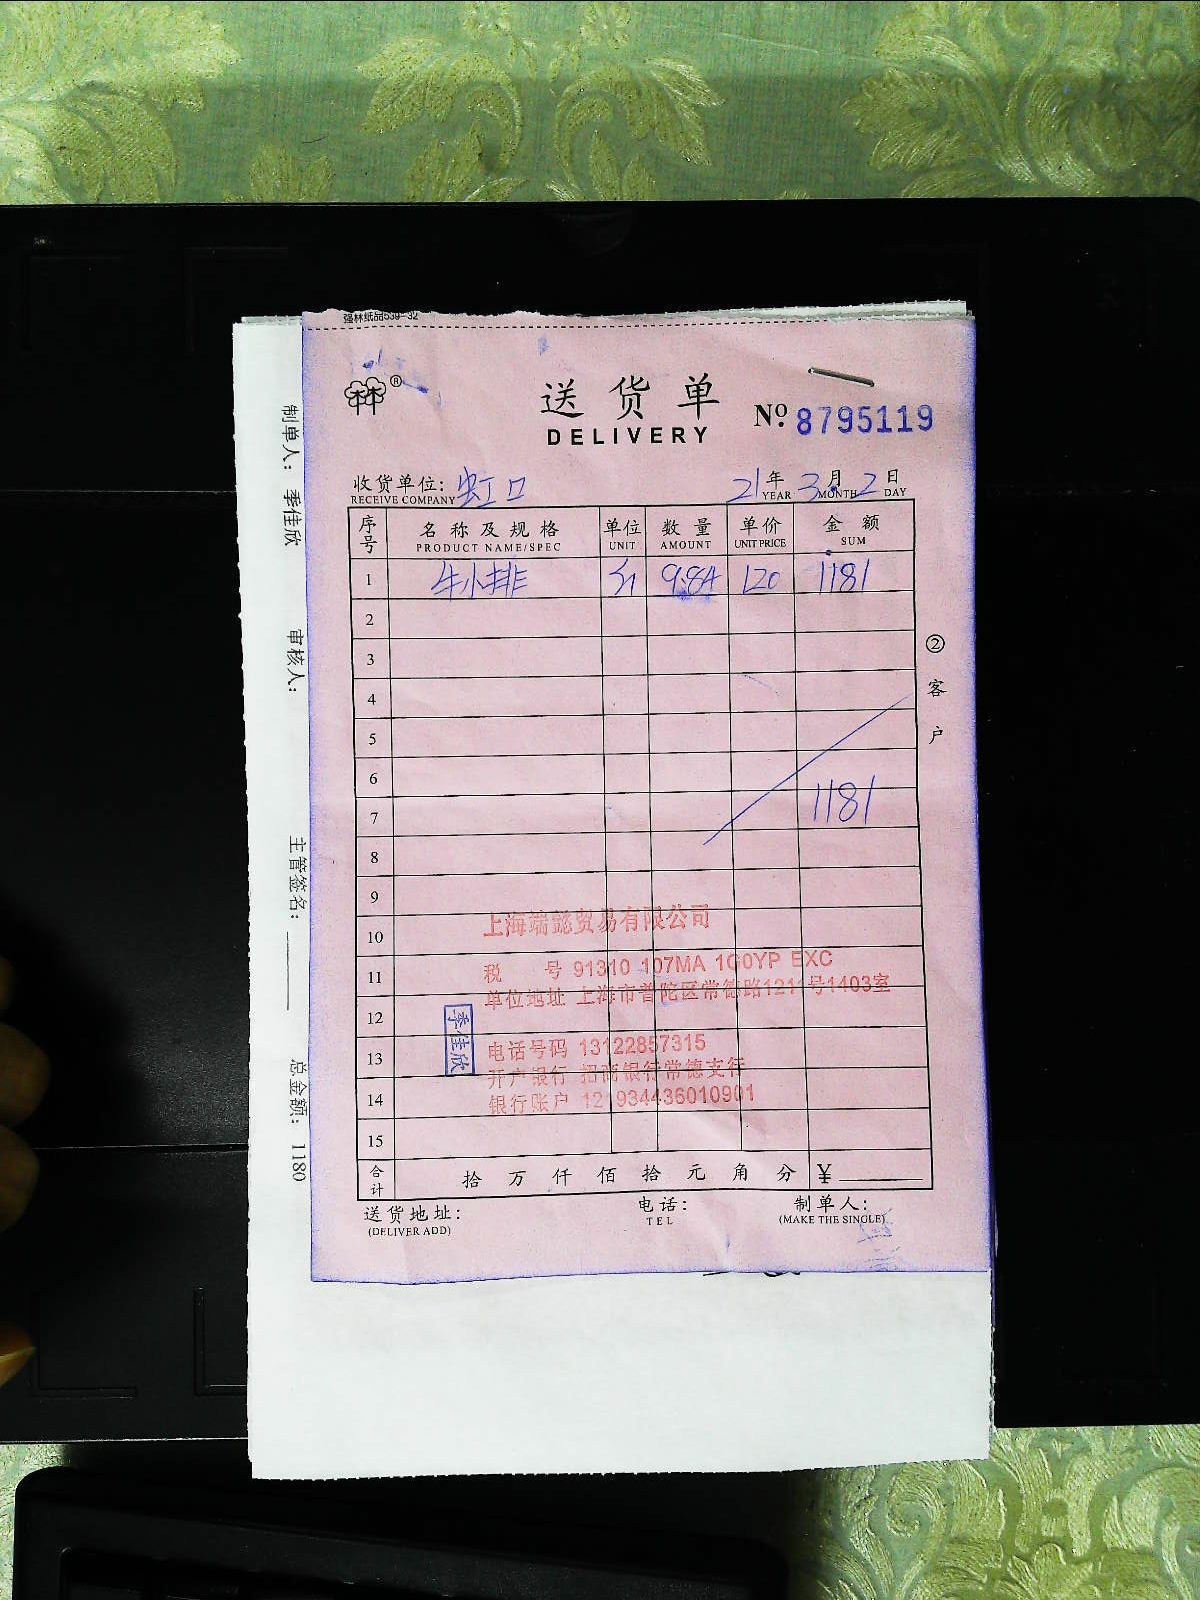 强林纸品539-32
送货单
DELIVERY
№ 8795119
收货单位: 虹口
RECEIVE COMPANY
21年3月2日
YEAR MONTH DAY
序号 名称及规格 单位 数量 单价 金额
PRODUCT NAME/SPEC UNIT AMOUNT UNIT PRICE SUM
1 牛小排 斤 9.84 120 1181
2
3
4
5
6
7 1181
8
9
10
11
12
13
14
15
②客户
上海端懿贸易有限公司
税 号 91310 107MA 1G0YP EXC
单位地址 上海市普陀区常德路1211号1403室
电话号码 13122857315
开户银行 招商银行常德支行
银行账户 121934436010901
季佳欣
合计 拾 万 仟 佰 拾 元 角 分 ¥
送货地址: 电话: 制单人:
(DELIVER ADD) TEL (MAKE THE SINGLE)
制单人: 季佳欣 审核人: 主管签名: 总金额: 1180